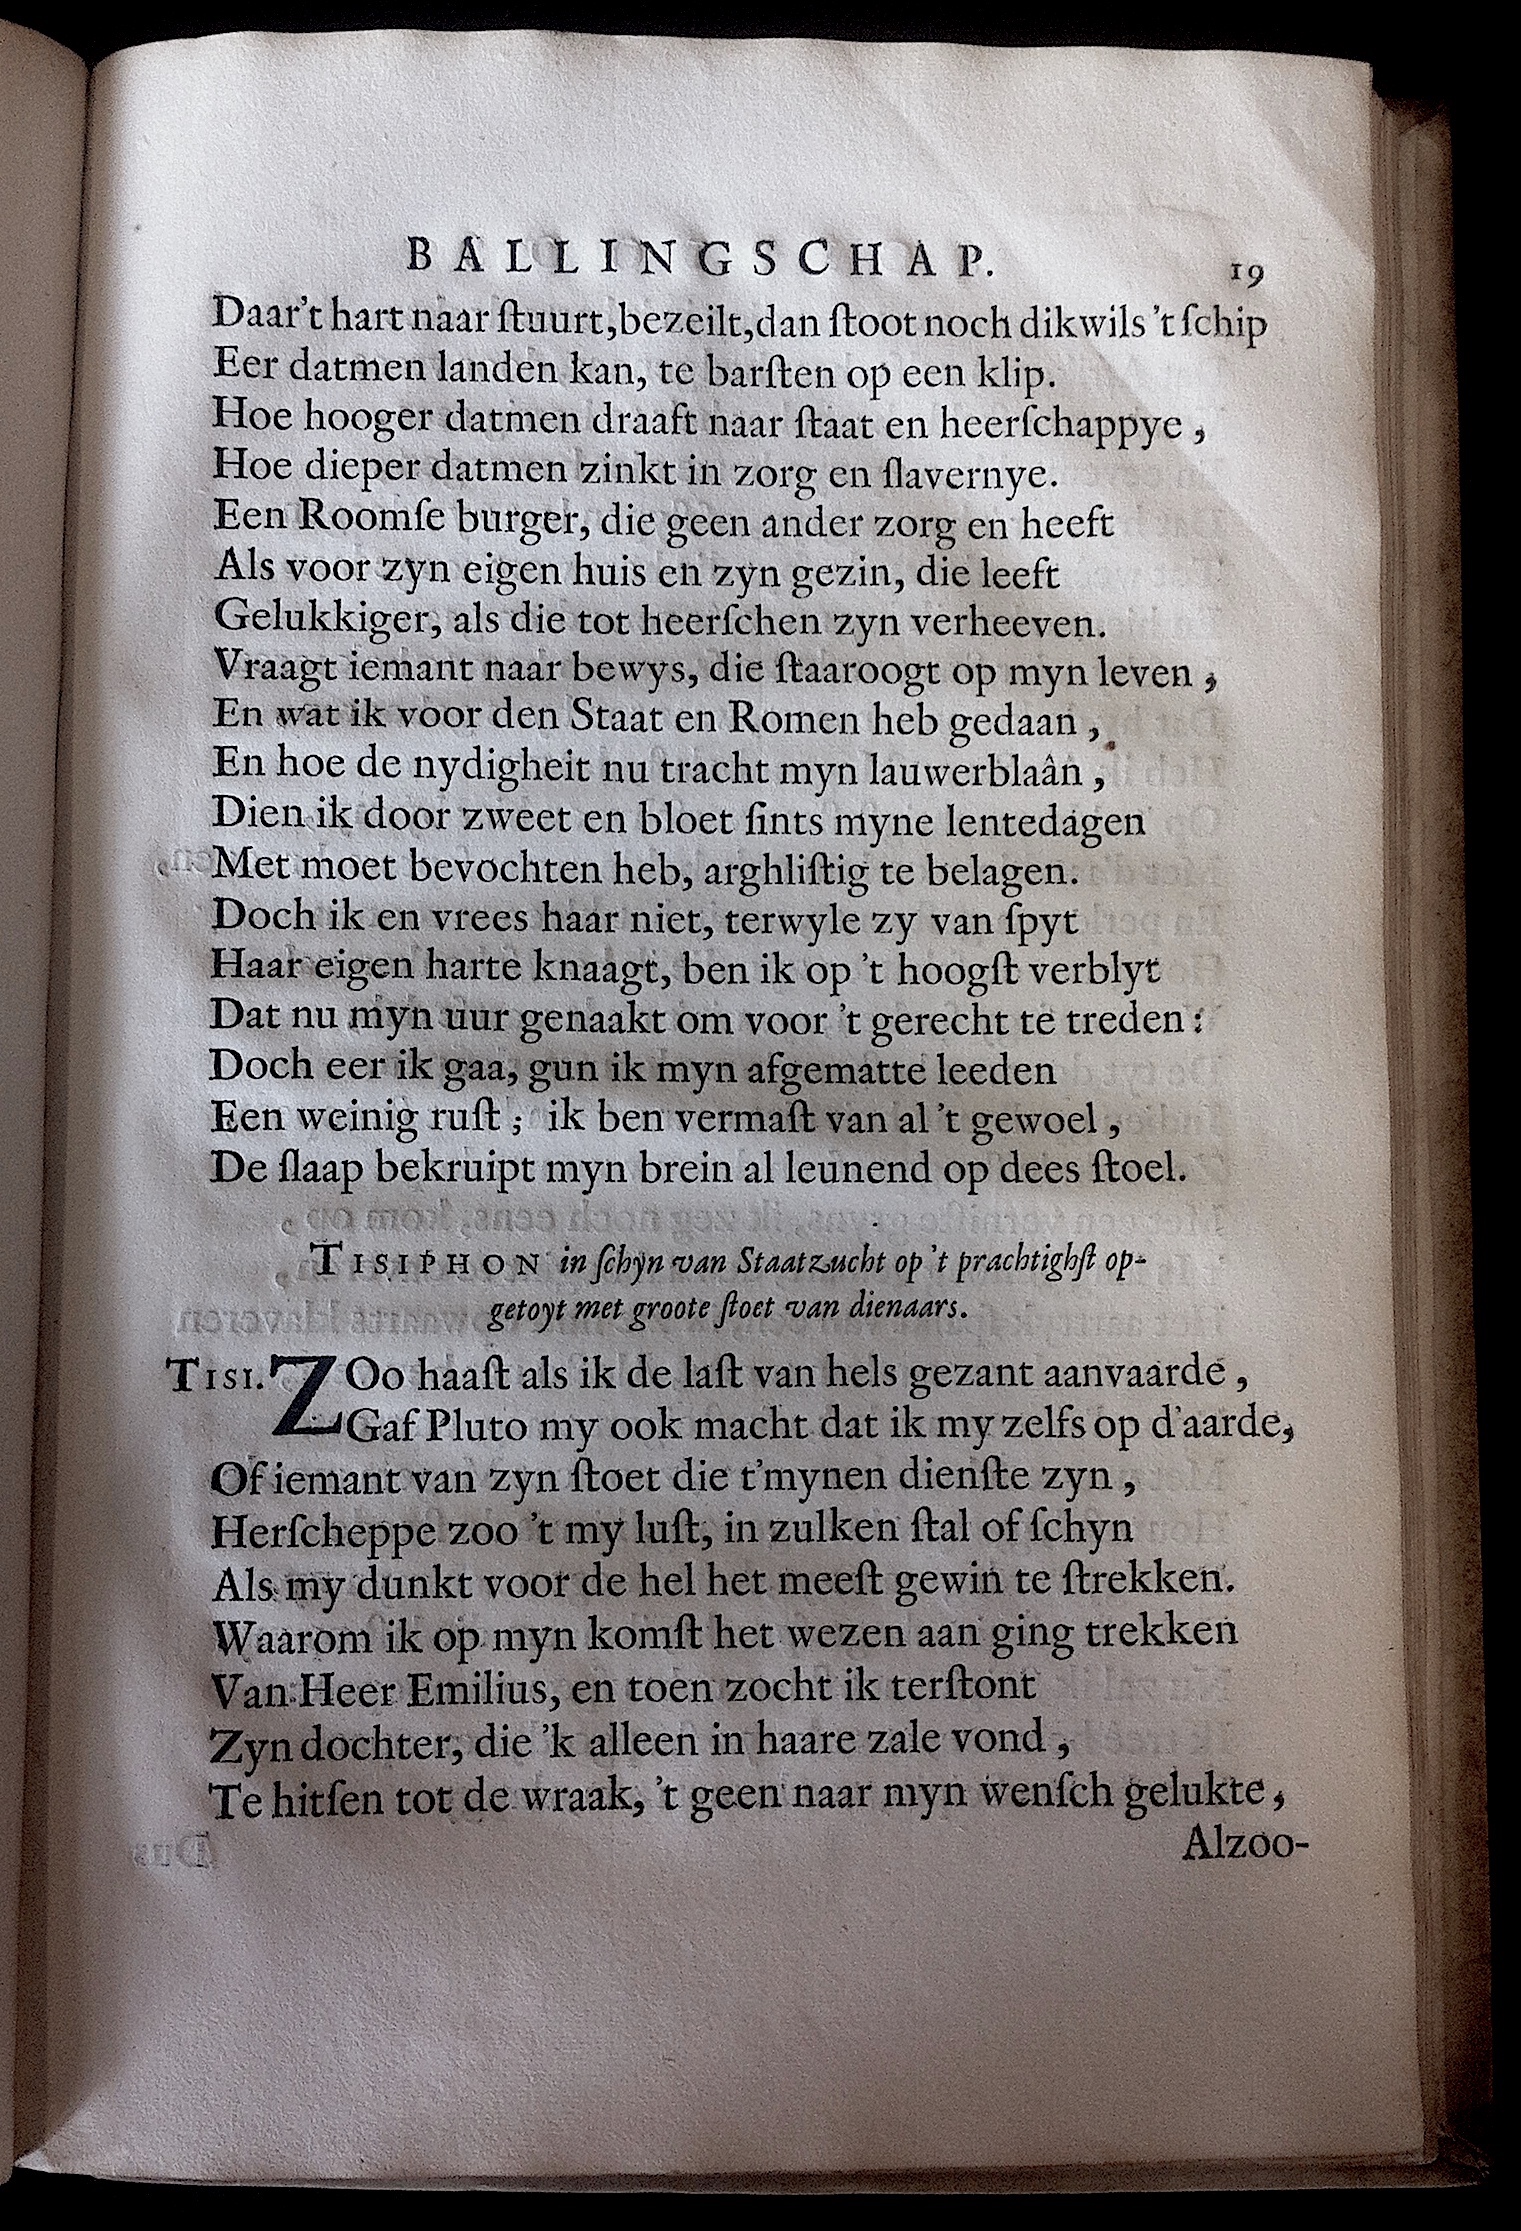 BALLINGSCHAP. 19
Daar't hart naar ſtuurt, bezeilt, dan ſtoot noch dikwils 't ſchip
Eer datmen landen kan, te barſten op een klip.
Hoe hooger datmen draaft naar ſtaat en heerſchappye,
Hoe dieper datmen zinkt in zorg en ſlavernye.
Een Roomſe burger, die geen ander zorg en heeft
Als voor zyn eigen huis en zyn gezin, die leeft
Gelukkiger, als die tot heerſchen zyn verheeven.
Vraagt iemant naar bewys, die ſtaaroogt op myn leven,
En wat ik voor den Staat en Romen heb gedaan,
En hoe de nydigheit nu tracht myn lauwerblaân,
Dien ik door zweet en bloet ſints myne lentedagen
Met moet bevochten heb, arghliſtig te belagen.
Doch ik en vrees haar niet, terwyle zy van ſpyt
Haar eigen harte knaagt, ben ik op 't hoogſt verblyt
Dat nu myn uur genaakt om voor 't gerecht te treden:
Doch eer ik gaa, gun ik myn afgematte leeden
Een weinig ruſt; ik ben vermaſt van al 't gewoel,
De ſlaap bekruipt myn brein al leunend op dees ſtoel.
TISIPHON in ſchyn van Staatzucht op 't prachtighſt op-
getoyt met groote ſtoet van dienaars.
TISI. ZOo haaſt als ik de laſt van hels gezant aanvaarde,
Gaf Pluto my ook macht dat ik my zelfs op d'aarde,
Of iemant van zyn ſtoet die t'mynen dienſte zyn,
Herſcheppe zoo 't my luſt, in zulken ſtal of ſchyn
Als my dunkt voor de hel het meeſt gewin te ſtrekken.
Waarom ik op myn komſt het wezen aan ging trekken
Van Heer Emilius, en toen zocht ik terſtont
Zyn dochter, die 'k alleen in haare zale vond,
Te hitſen tot de wraak, 't geen naar myn wenſch gelukte,
Alzoo-